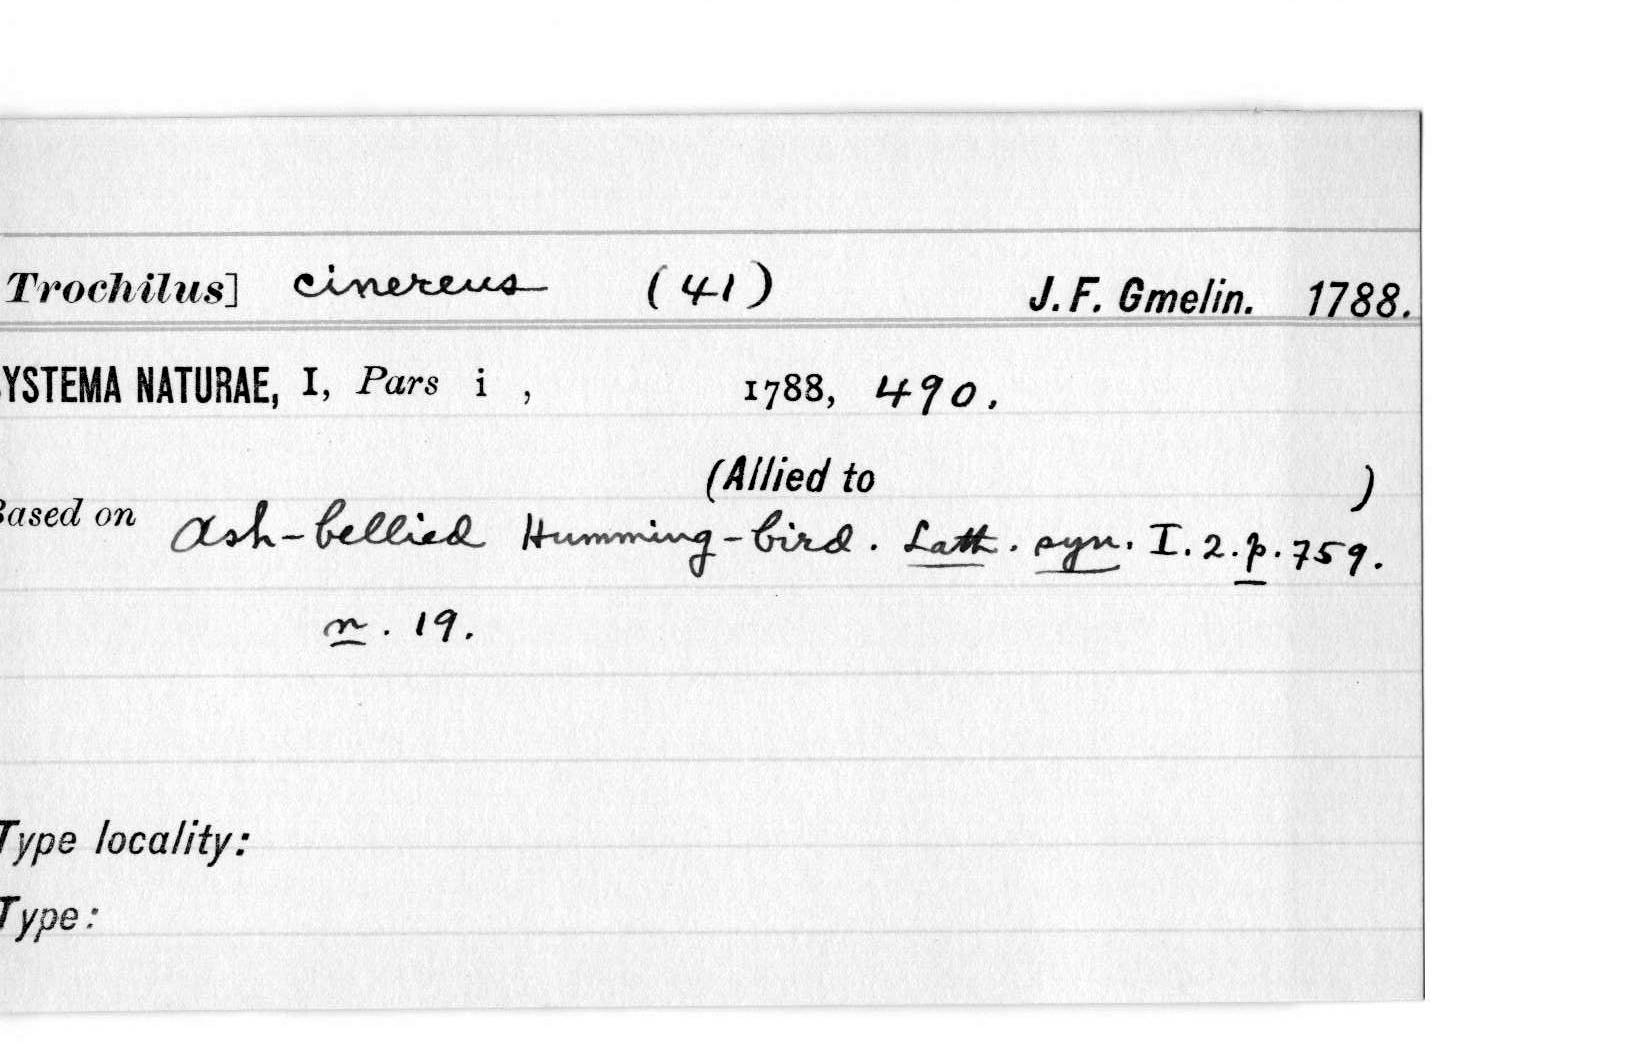 Trochilus] cinereus (41) J. F. Gmelin. 1788.
YSTEMA NATURAE, I, Pars i , 1788, 490.
(Allied to )
Based on Ash-bellied Humming-bird. Lath. syn. I. 2. p. 759.
n. 19.
Type locality:
Type: